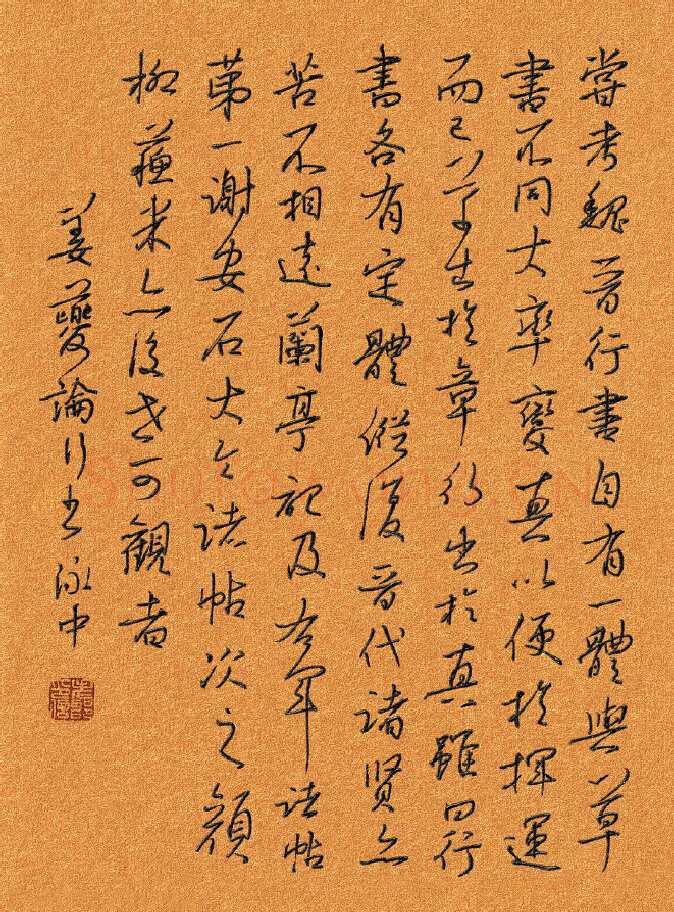 嘗考魏晉行書自有一體與草
書不同大率變真以便於揮運
而已草出於章行出於真雖曰行
書各有定體縱復晉代諸賢亦
苦不相遠蘭亭記及右軍諸帖
第一謝安石大令諸帖次之顏
柳蘇米亦後世可觀者
姜夔論行书泳中